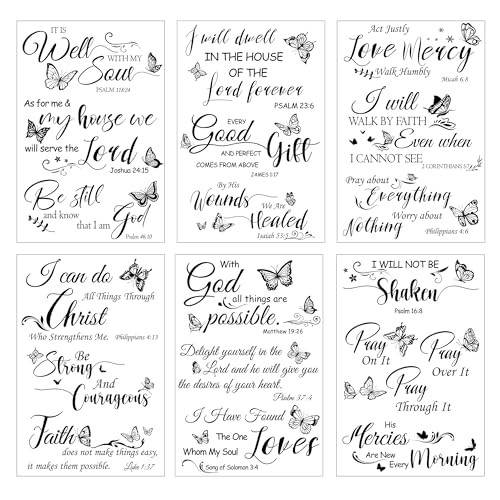 IT IS
Well
WITH MY
Soul
PSALM 118:24
As for me &
my house we
will serve the
Lord
Joshua 24:15
Be still
and know
that I am
God
Psalm 46:10
I will dwell
IN THE HOUSE
OF THE
Lord forever
PSALM 23:6
EVERY
Good
AND PERFECT
Gift
COMES FROM ABOVE
JAMES 1:17
By His
Wounds
We Are
Healed
Isaiah 53:5
Act Justly
Love Mercy
Walk Humbly
Micah 6:8
I will
WALK BY FAITH
Even when
I CANNOT SEE
2 CORINTHIANS 5:7
Pray about
Everything
Worry about
Nothing
Philippians 4:6
I can do
All Things Through
Christ
Who Strengthens Me.
Philippians 4:13
Be
Strong
And
Courageous
Faith
does not make things easy,
it makes them possible.
Luke 1:37
With
God
all things are
possible.
Matthew 19:26
Delight yourself in the
Lord and he will give you
the desires of your heart.
Psalm 37:4
I Have Found
The One
Whom My Soul
Loves
Song of Solomon 3:4
I WILL NOT BE
Shaken
Psalm 16:8
Pray
On It
Pray
Over It
Pray
Through It
His
Mercies
Are New
Every
Morning